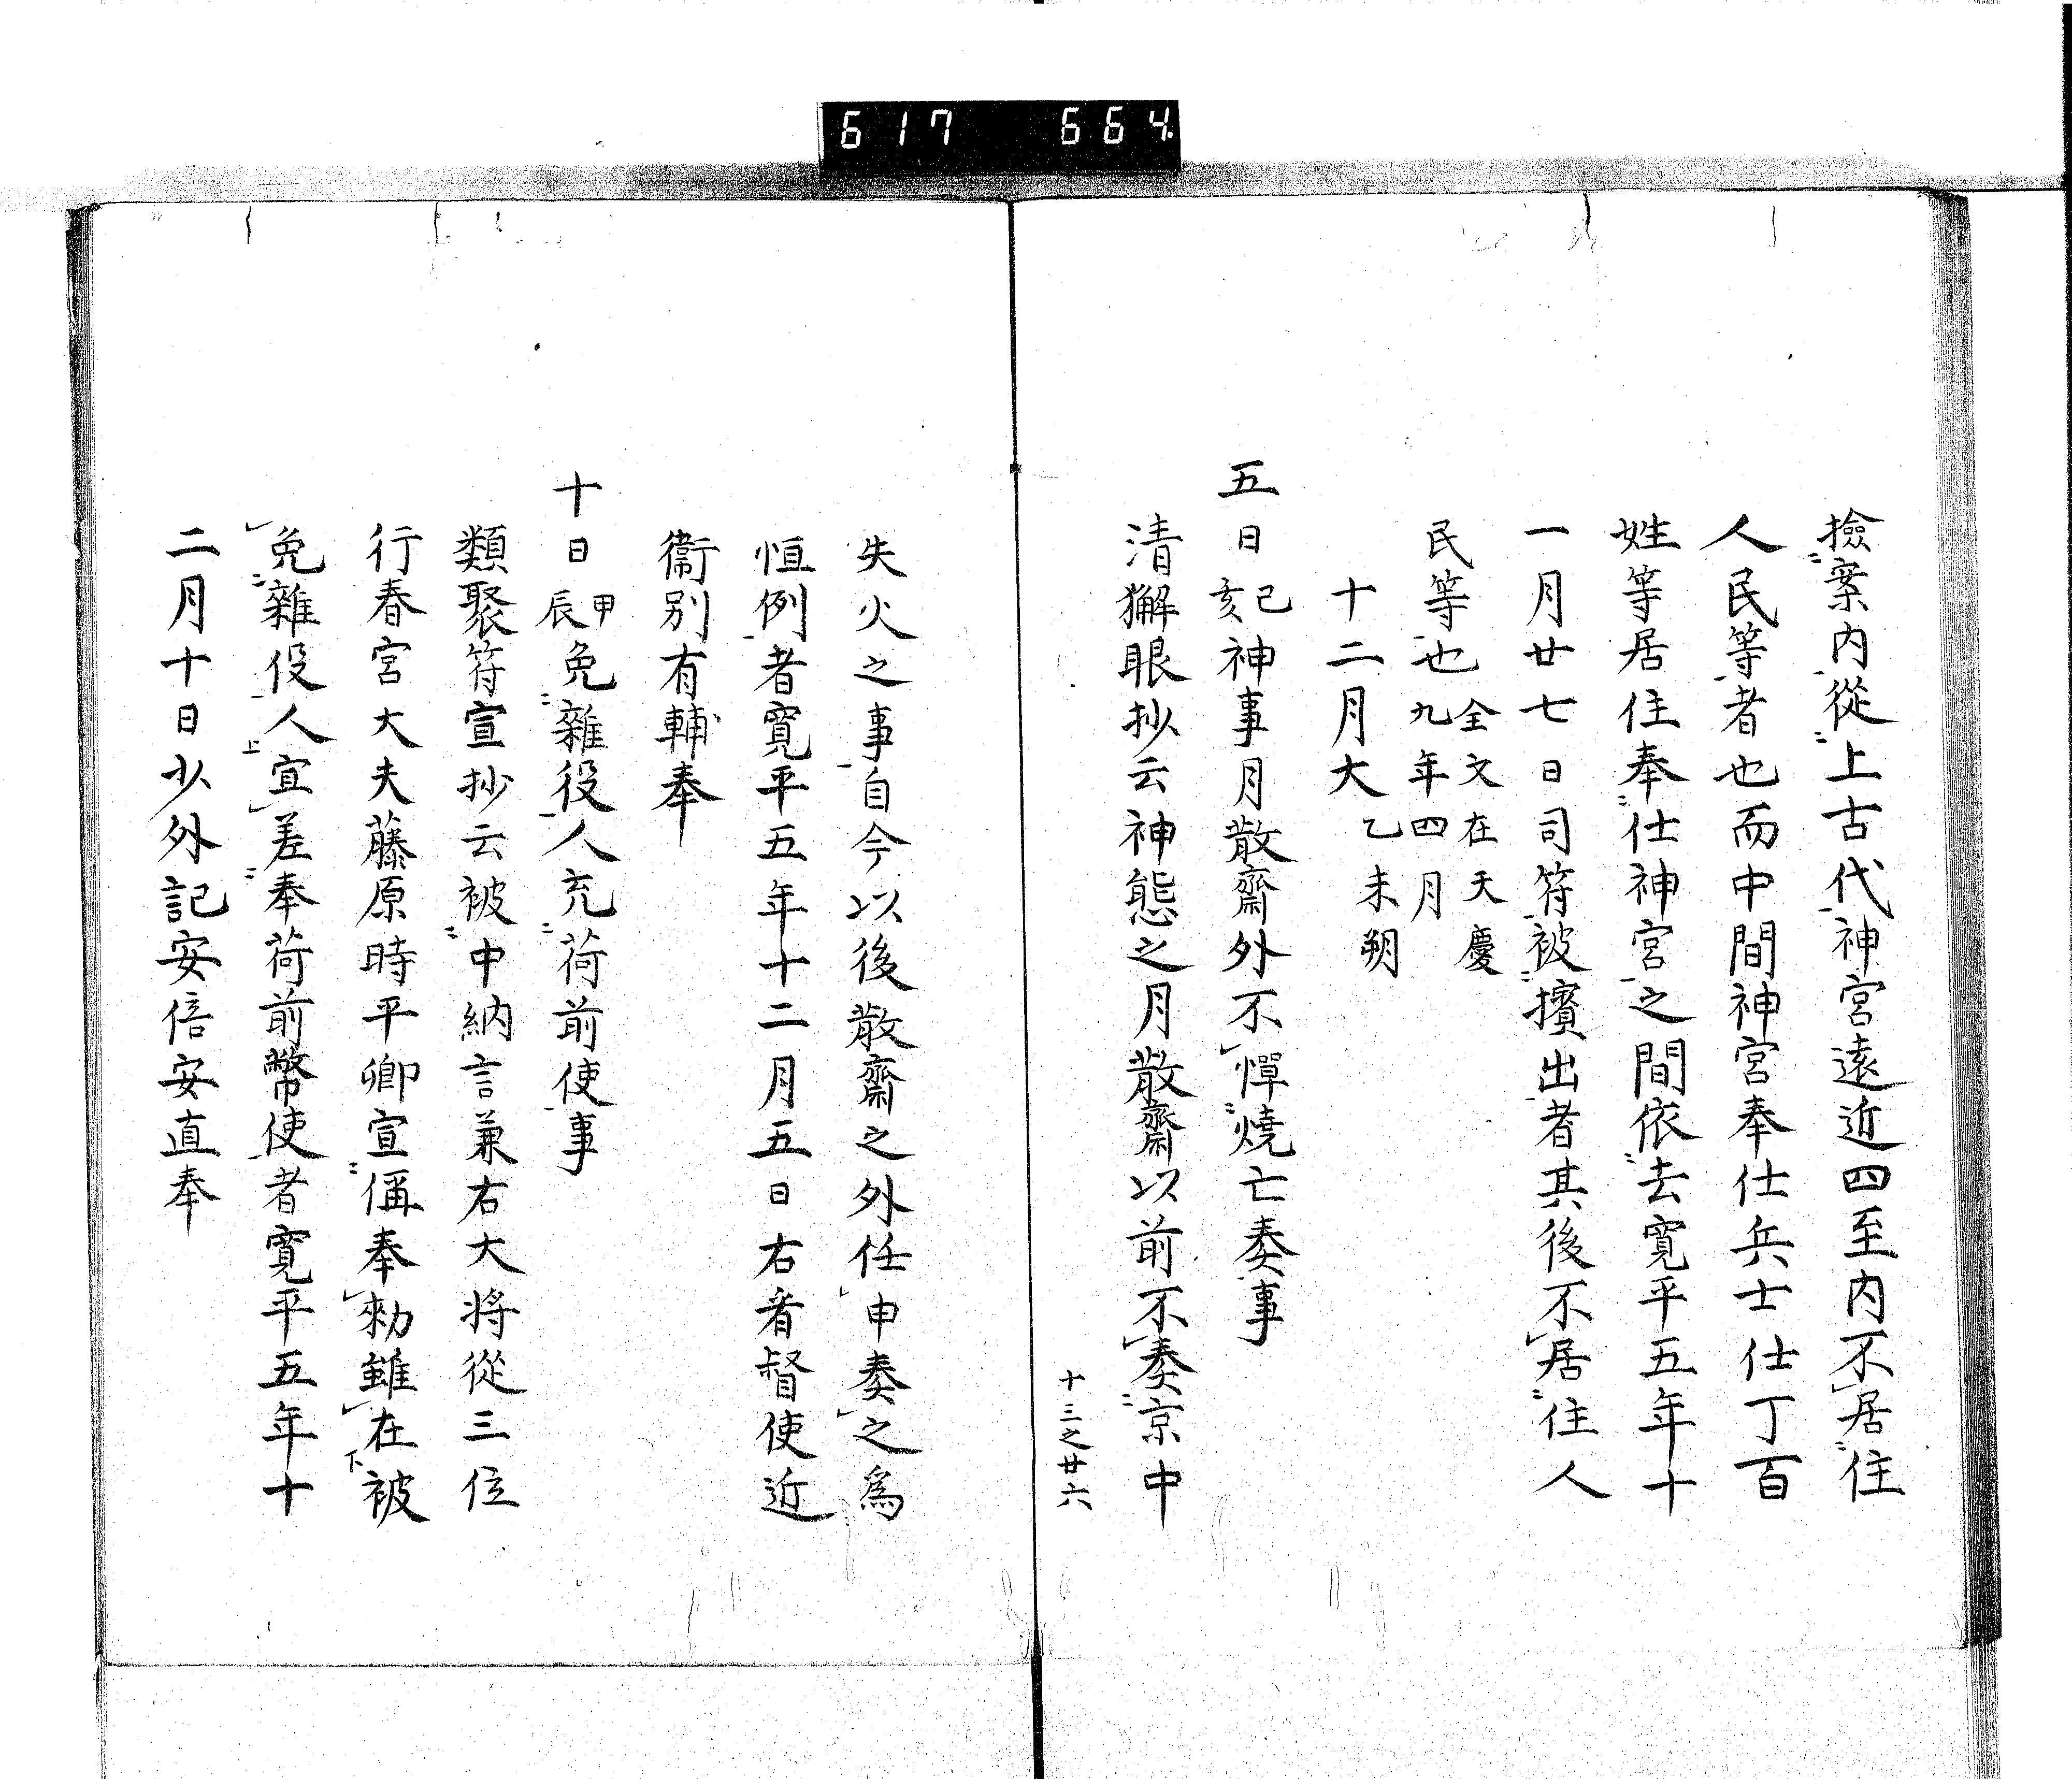 617 664
撿案内從上古代神宮遠近四至内不居住
人民等者也而中間神宮奉仕兵士仕丁百
姓等居住奉仕神宮之間依去寛平五年十
一月廿七日司符被擯出者其後不居住人
民等也全文在天慶九年四月
十二月大乙未朔
五日己亥神事月散齋外不憚燒亡奏事
清獬眼抄云神態之月散齋以前不奏京中
十三之廿六
失火之事自今以後散齋之外任申奏之爲
恒例者寛平五年十二月五日右看督使近
衞別有輔奉
十日甲辰免雜役人充荷前使事
類聚符宣抄云被中納言兼右大将從三位
行春宮大夫藤原時平卿宣偁奉勅雖在被
免雜役人宜差奉荷前幣使者寛平五年十
二月十日少外記安倍安直奉